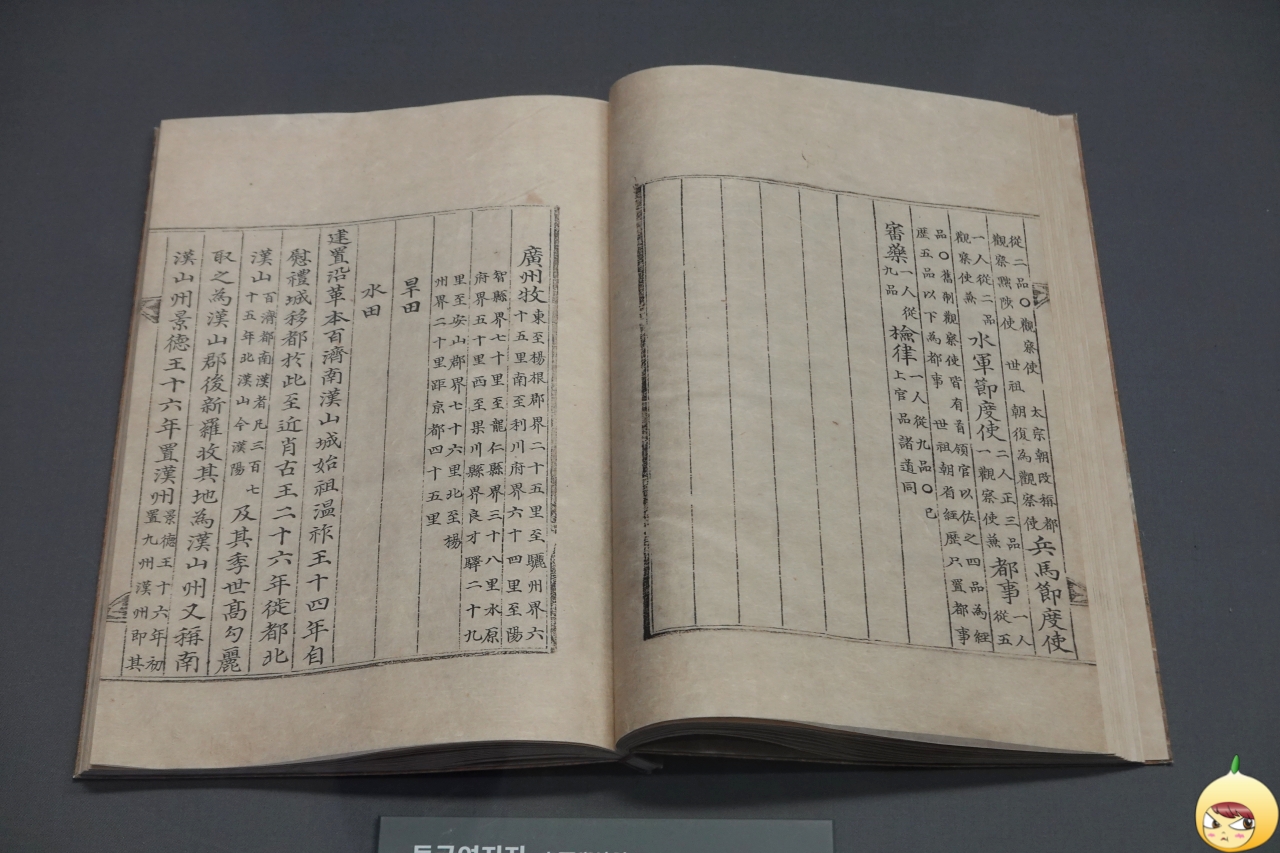 從二品○觀察使太宗朝改稱都
觀察黜陟使世祖朝復為觀察使
兵馬節度使
一人從二品
觀察使兼
水軍節度使
二人正三品
一觀察使兼
都事
一人
從五
品○舊制觀察使皆有首領官以佐之四品為經
歷五品以下為都事世祖朝省經歷只置都事
審藥
一人從
九品
檢律
一人從九品○已
上官品諸道同
廣州牧
東至楊根郡界二十五里至驪州界六
十五里南至利川府界六十四里至陽
智縣界七十里至龍仁縣界三十八里水原
府界五十里西至果川縣界良才驛二十九
里至安山郡界七十六里北至楊
州界二十里距京都四十五里
旱田
水田
建置沿革本百濟南漢山城始祖溫祚王十四年自
慰禮城移都於此至近肖古王二十六年徙都北
漢山
百濟都南漢者凡三百七
十五年北漢山今漢陽
及其季世高勾麗
取之為漢山郡後新羅收其地為漢山州又稱南
漢山州景德王十六年置漢州
景德王十六年初
置九州漢州即其
동국여지지